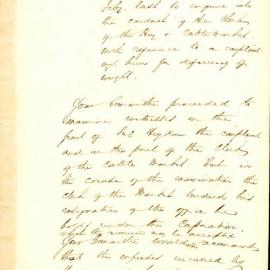 Feby. last to enquire into
the conduct of the Clerk
of the Hay & Cattle Market
with reference to a complaint
agt. him for deficiency of
weight.
Your Committee proceeded to
examine witnesses on the
part of Mr Heydon the complainant
and on the part of the Clerk
of the Cattle Market but in
the course of the examination the
Clerk of the Market tendered his
resignation of the office he
holds under the Corporation
which
Your Committee would recommend
that the expenses incurred by